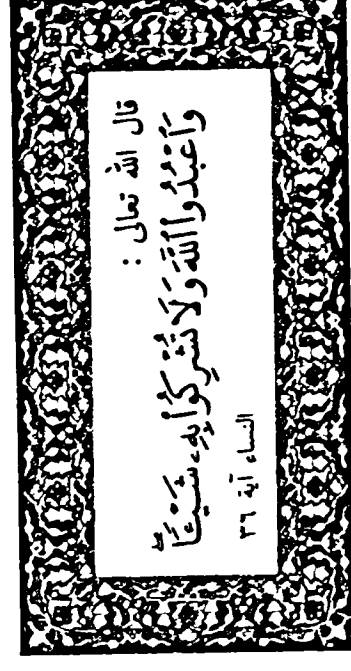 قال الله تعالى :
وَٱعْبُدُوا۟ ٱللَّهَ وَلَا تُشْرِكُوا۟ بِهِۦ شَيْـًٔا ۖ
النساء آية ٣٦